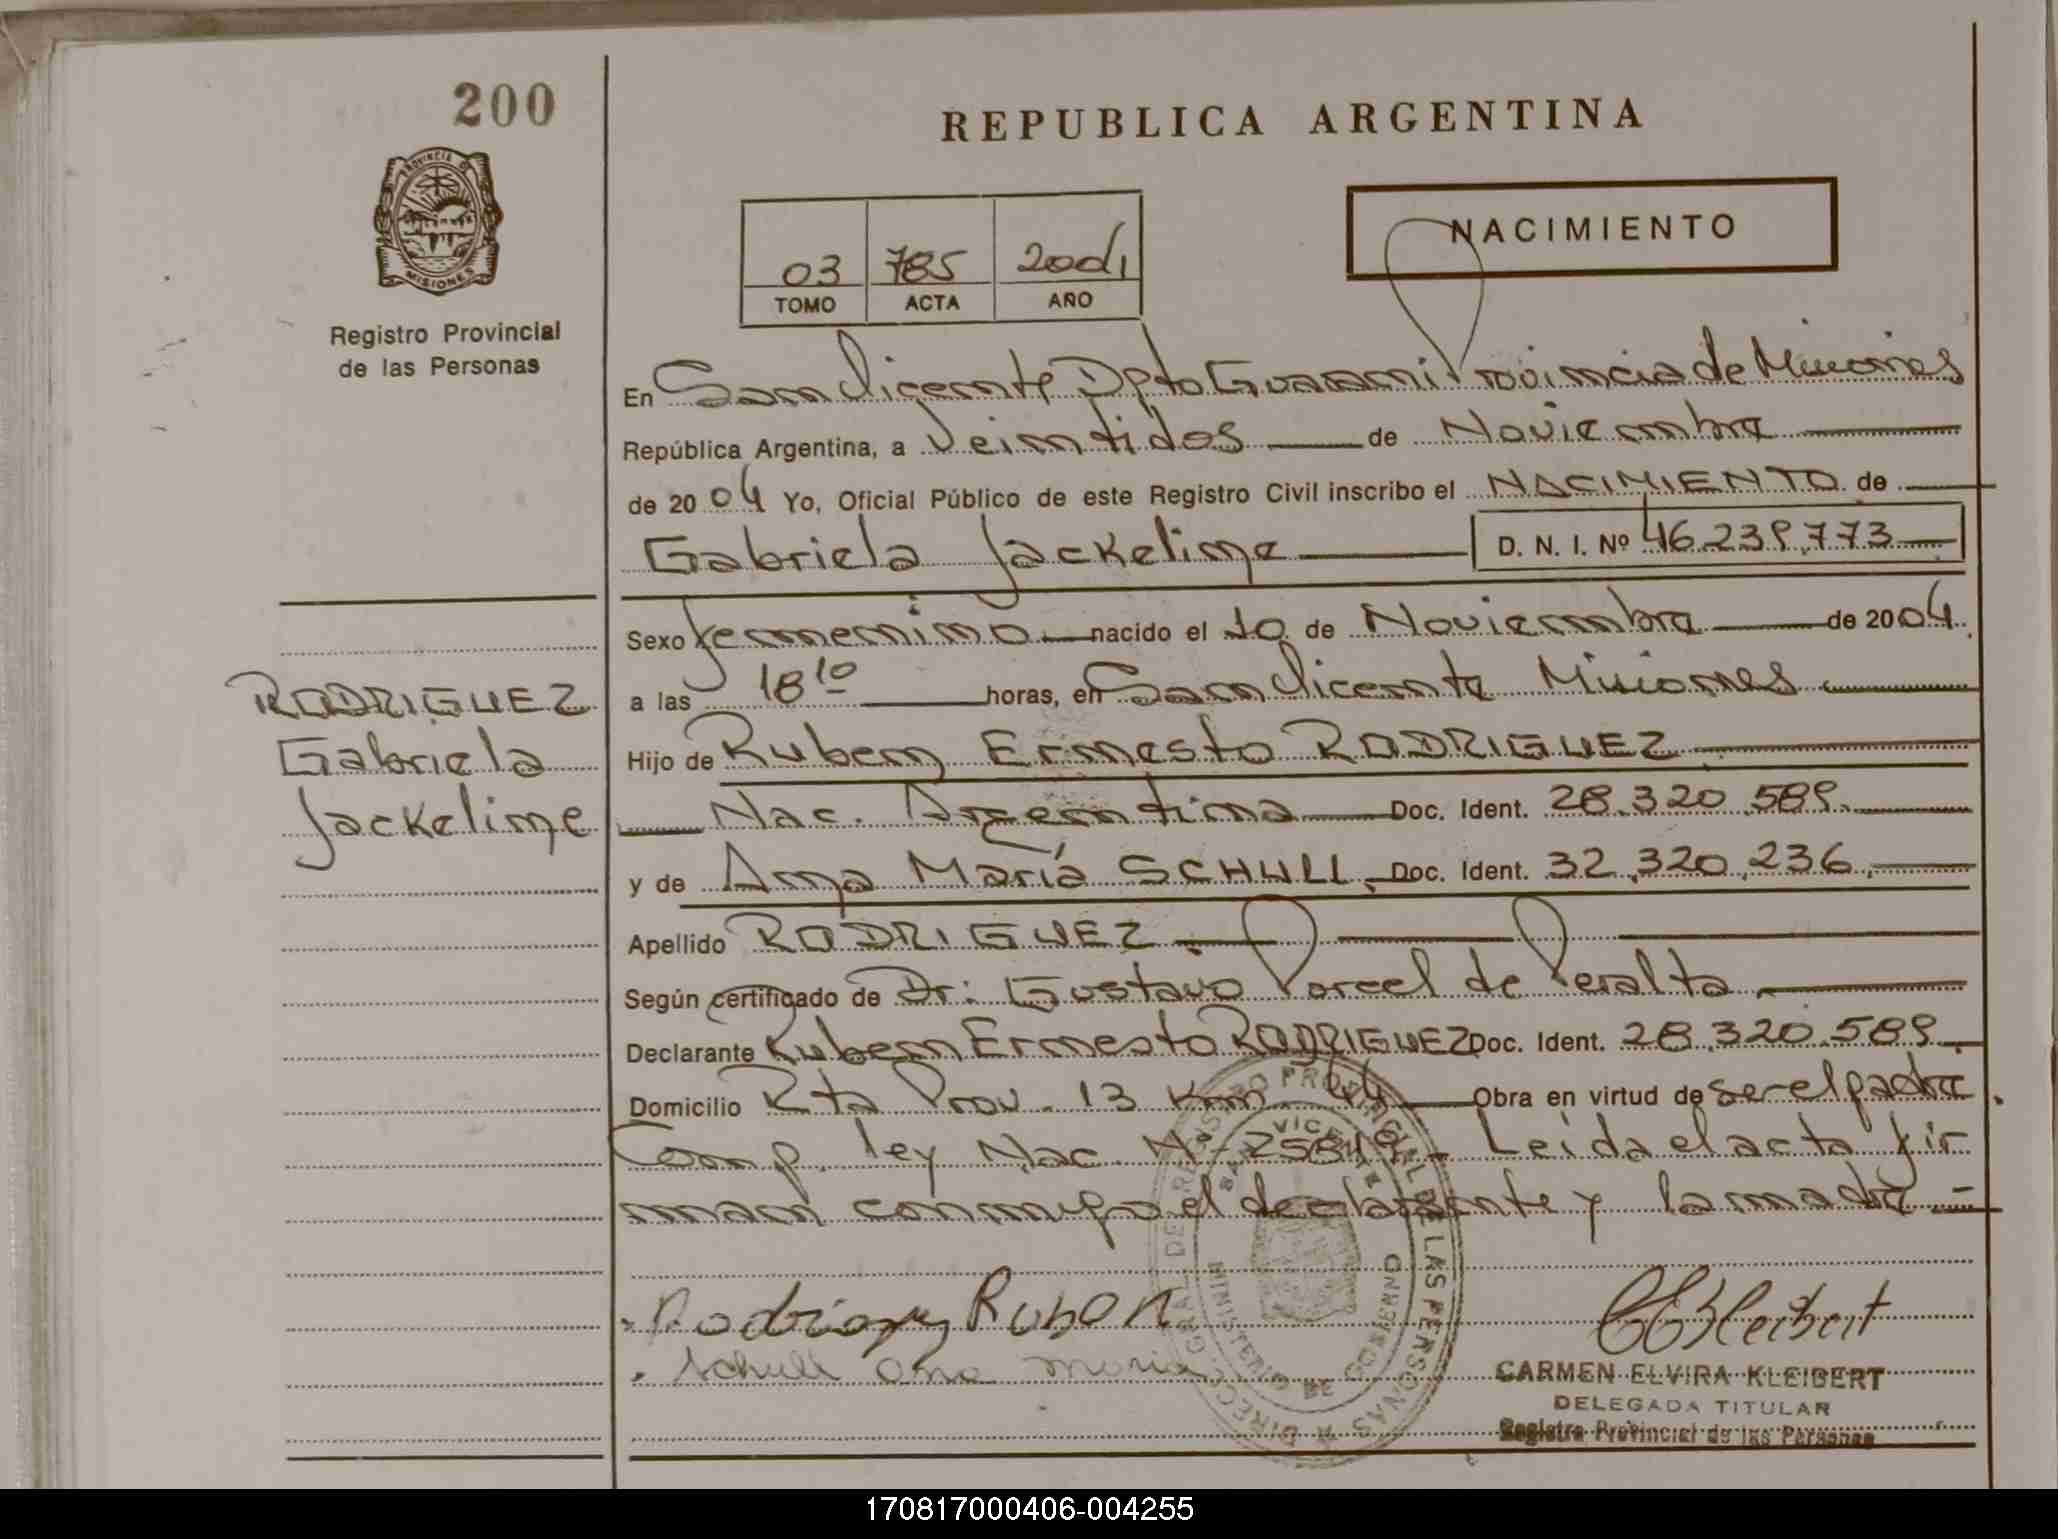 200
REPUBLICA ARGENTINA
PROVINCIA DE
MISIONES
Registro Provincial
de las Personas
NACIMIENTO
03 785 2004
TOMO ACTA AÑO
En San Vicente Dpto Guarani Provincia de Misiones
República Argentina, a Veintidos de Noviembre
de 2004 Yo, Oficial Público de este Registro Civil inscribo el NACIMIENTO de
Gabriela Jackeline D. N. I. Nº 46.239.773
Sexo femenino nacido el 10 de Noviembre de 2004
a las 18 10 horas, en San Vicente Misiones
RODRIGUEZ
Gabriela
Jackeline
Hijo de Ruben Ernesto RODRIGUEZ
Nac. Argentina Doc. Ident. 28.320.589
y de Ana María SCHULL. Doc. Ident. 32.320.236.
Apellido RODRIGUEZ
Según certificado de Dr: Gustavo Porcel de Peralta
Declarante Ruben Ernesto RODRIGUEZ Doc. Ident. 28.320.589
Domicilio Rta Prov. 13 Km 44 Obra en virtud de ser el padre.
Comp. ley Nac. Nº 25819 - Leida el acta fir
man conmigo el declarante y la madre =
Rodriguez Ruben
Schull Ana Maria
CEKleibert
CARMEN ELVIRA KLEIBERT
DELEGADA TITULAR
Registro Provincial de las Personas
170817000406-004255